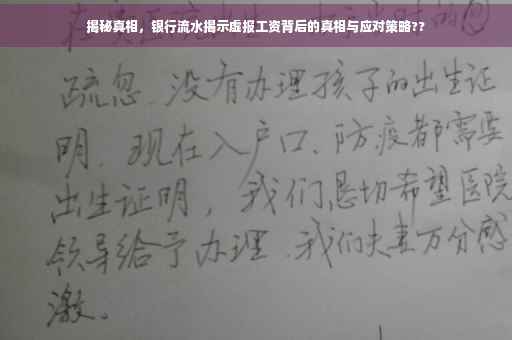 揭秘真相，银行流水揭示虚报工资背后的真相与应对策略??
疏忽.没有办理孩子的出生证
明.现在入户口、防疫都需要
出生证明，我们恳切希望医院
领导给予办理.我们夫妻万分感
激。